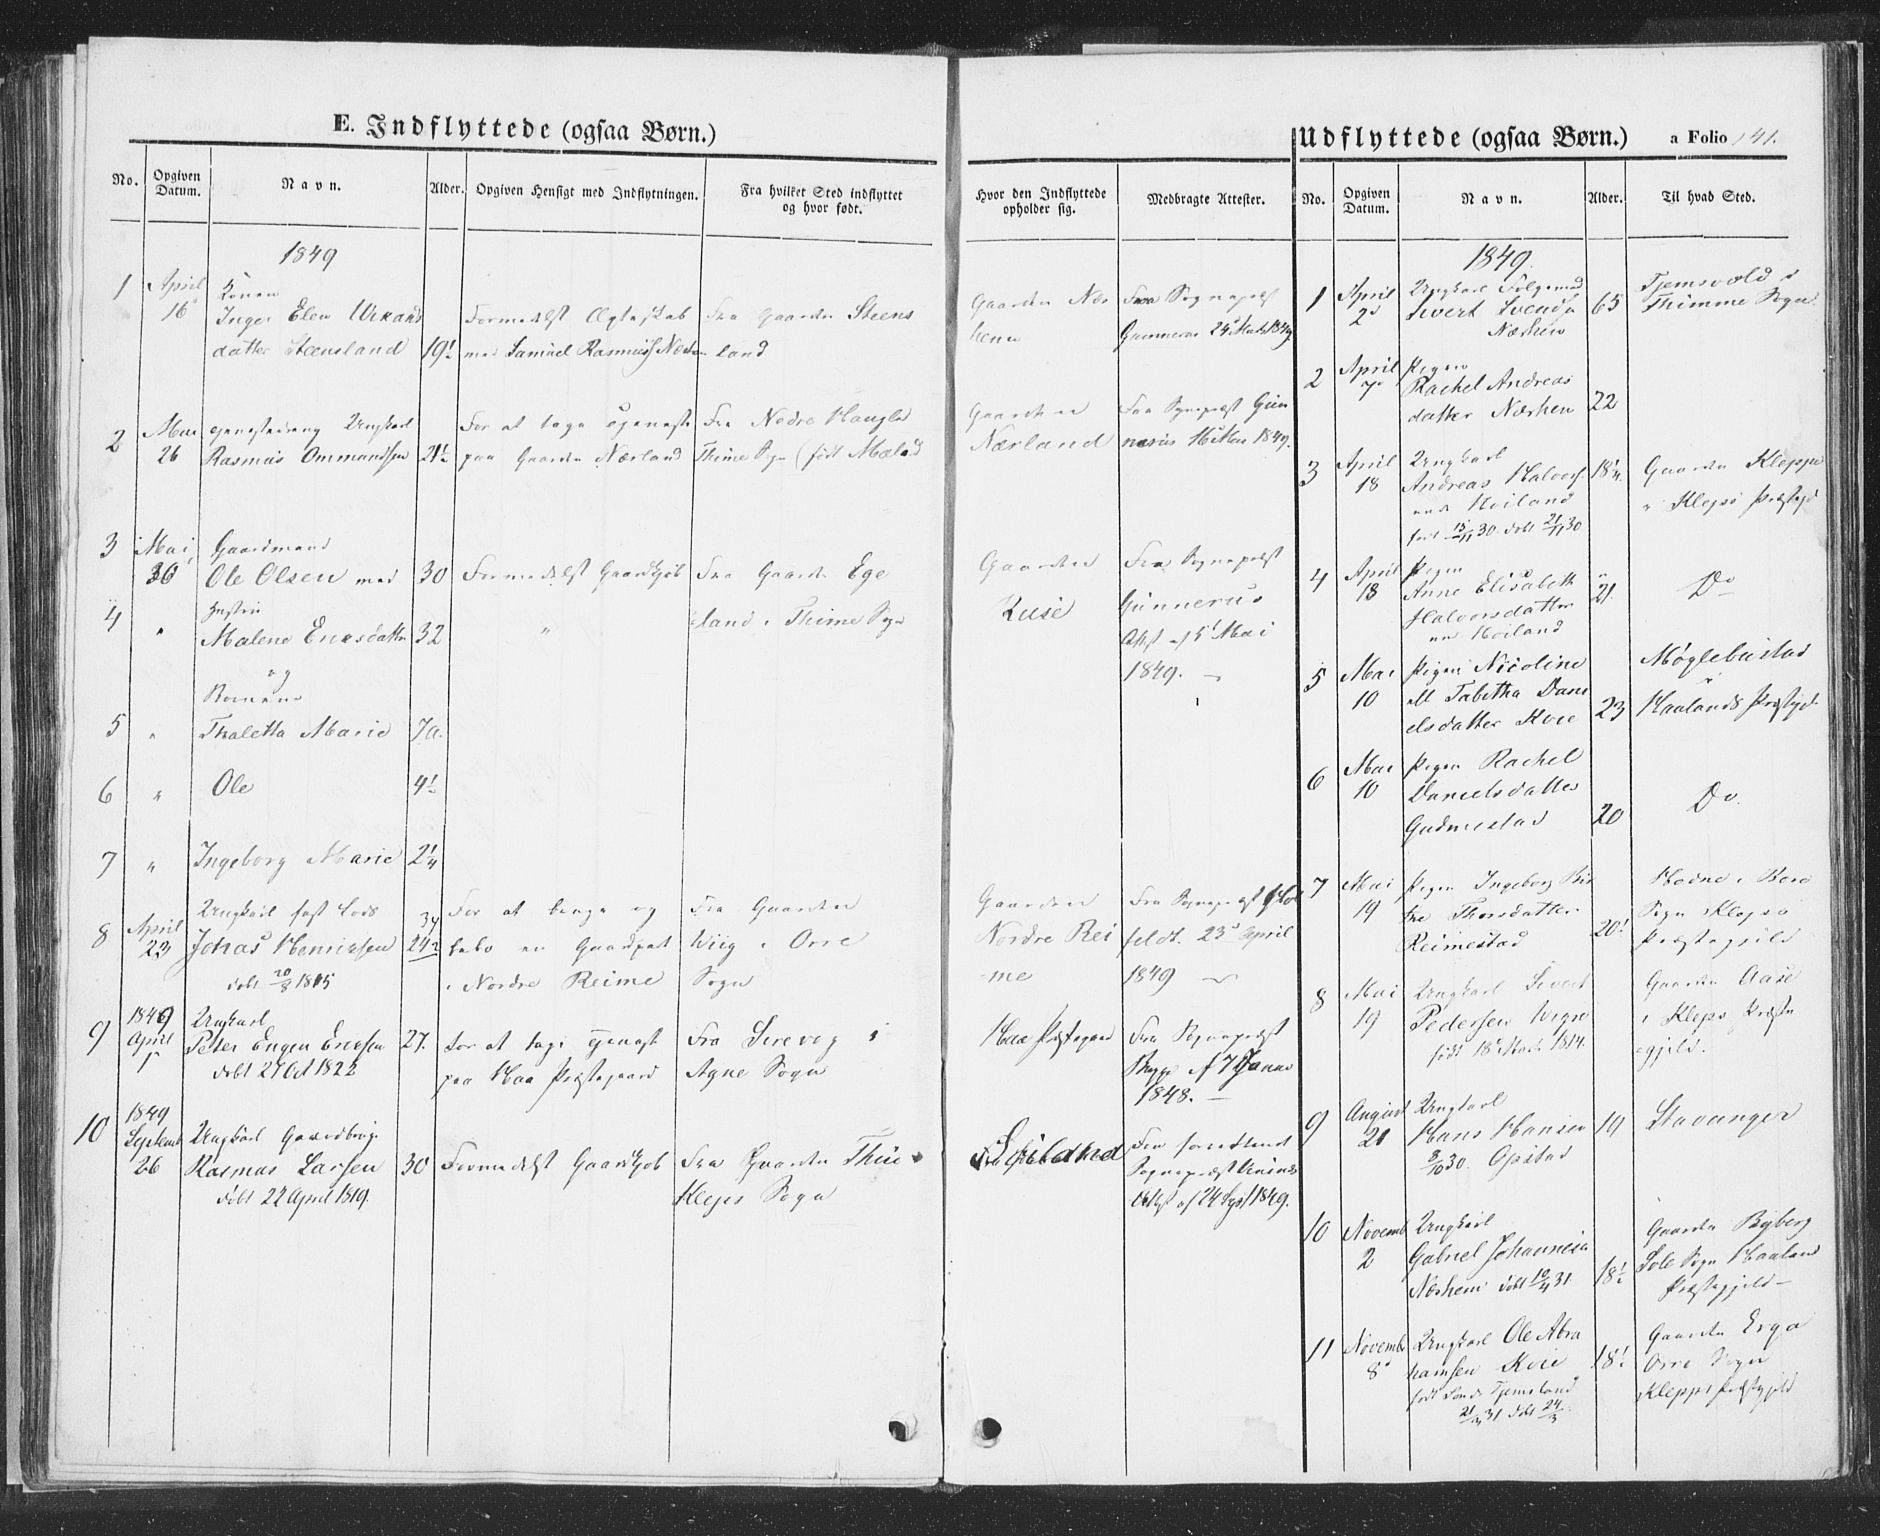 E. Indflyttede (ogsaa Børn.)
No.
Opgiven Datum.
Navn.
Alder.
Opgiven Hensigt med Indflytningen.
Fra hvilket Sted indflyttet og hvor født.
Hvor den Indflyttede opholder sig.
Medbragte Attester.
1849
1
April
16
Konen
Inger Elen
datter Steensland
19½
Formedelst Ægteskab
med Samuel Rasmuss
Fra Gaarden Steens
land
Gaarden Næs
heim
Fra Sognepræst
Gunnerus 24 1849
2
Mai
26
Ungkarl
Rasmus Ommundsen
21½
For at tage tjeneste
paa Gaarden Nærland
Fra Nedre Haugla
Thime Sogn (født
Gaarden
Nærland
Fra Sognepræst Gun
nerus 16 Mai 1849.
3
Mai
30
Gaardmand
Ole Olsen med
30
Formedelst Gaardkjøb
Fra Gaarden Ege
land i Thime Sogn
Gaarden
Ruse
Fra Sognepræst
Gunnerus
Attst af 5 Mai
1849.
4
"
Hustru
Malene Ericsdatter
32
"
og
Børnene
5
"
Thaletta Marie
7 a.
6
"
Ole
4½
7
"
Ingeborg Marie
2¼
8
April
23
Ungkarl
Jonas Henricsen
døbt 20/8 1815
34
24½
For at bruge og
bebo en Gaardpart
i Nordre Reime
Fra Gaarden
Wiig i Orre
Sogn
Gaarden
Nordre Rei
me
Fra Sognepræst
feldt. 23 April
1849
9
1849
April
Ungkarl
Peter Engen Ericsen
døbt 27 Oct 1822
27.
for at tage tjenest
paa Haa Præstegaard
Fra Sirevog i
Agne Sogn
Haa Præstegaard
Fra Sognepræst
af 7 Janua
1848.
10
1849
Septemb
26
Ungkarl Gaardbruger
Rasmus Larsen
døbt 22 April 1819.
30
Formedelst Gaardkjøb
Fra Gaarden Thu
Kleps Sogn
Fra
Sognepræst
Attst af 24 Sept 1849.
Udflyttede (ogsaa Børn.)
a Folio 141.
No.
Opgiven Datum.
Navn.
Alder.
Til hvad Sted.
1849.
1
April
2
Ungkarl Følgemand
Sivert Svends
Næsheim
65
Tjemsvold i
Thimme Sogn.
2
April
7
Pigen
Rachel Andreas
datter Næshem
22
3
April
18
Ungkarl
Andreas Halvors
Hoiland
født 15/11 30 døbt 21/11 30
18¼
Gaarden Kleppe
i Kleps Præstegjd
4
April
18
Pigen
Anne Elisabeth
Halvorsdatter
Hoiland
21.
Do
5
Mai
10
Pigen Nicoline
Tabitha Dani
elsdatter Kvie
23
Møglebustad
i
Haalands Præstegjd
6
Mai
10
Pigen Rachel
Danielsdatter
Gudmestad
20
Do.
7
Mai
19
Pigen Ingeborg Bir
tre Thorsdatter
Reimestad
20½
Hodne i Bore
Sogn Kleps
Præstegjeld
8
Mai
19
Ungkarl Sivert
Pedersen
født 18 1814.
Gaarden Aase
i Kleps Præste
gjeld.
9
August
21
Ungkarl
Hans Hansen
8/10 30. Opstad
19
Stavanger
10
Novemb
2
Ungkarl
Gabriel Johannesen
Næsheim døbt 10/4 31.
18½
Gaarden Byberg
Sole Sogn Haaland
Præstegjeld
11
Novemb
8
Ungkarl Ole Abra
hamsen Kvie
født Tjemsland
21/3 31 døbt 24/3
18½
Gaarden Erga
Orre Sogn
Klepps Præstegjeld